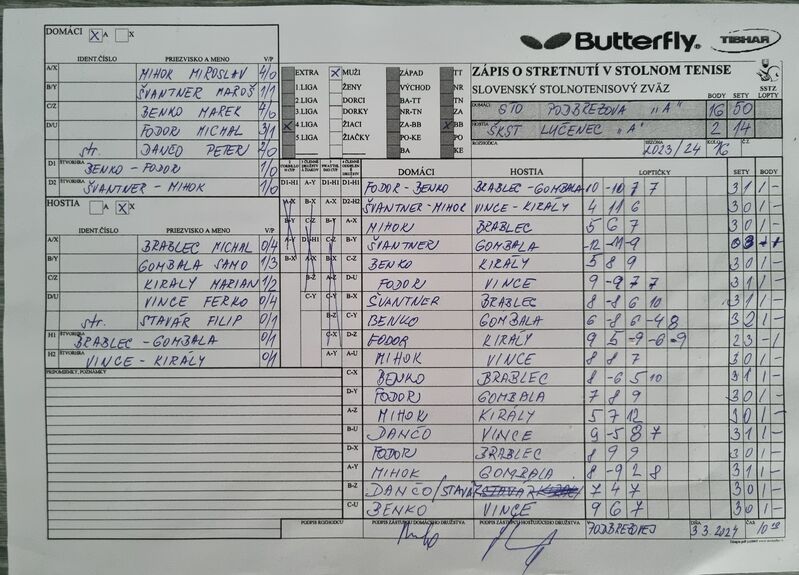 DOMÁCI X A X
IDENT.ČÍSLO PRIEZVISKO A MENO V/P
A/X MIHOK MIROSLAV 4/0
B/Y ŠVANTNER MAROŠ 1/1
C/Z BENKO MAREK 4/0
D/U FODOR MICHAL 3/1
str. DANČO PETER 2/0
D1 ŠTVORHRA BENKO - FODOR 1/0
D2 ŠTVORHRA ŠVANTNER - MIHOK 1/0
HOSTIA A X X
IDENT.ČÍSLO PRIEZVISKO A MENO V/P
A/X BRABLEC MICHAL 0/4
B/Y GOMBALA SAMO 1/3
C/Z KIRÁLY MARIAN 1/2
D/U VINCE FERKO 0/4
str. STAVÁR FILIP 0/1
H1 ŠTVORHRA BRABLEC - GOMBALA 0/1
H2 ŠTVORHRA VINCE - KIRÁLY 0/1
PRIPOMIENKY, POZNÁMKY
Butterfly TIBHAR
EXTRA X MUŽI ZÁPAD TT
1.LIGA ŽENY VÝCHOD NR
2.LIGA DORCI BA-TT TN
3.LIGA DORKY NR-TN ZA
X 4.LIGA ŽIACI ZA-BB X BB
5.LIGA ŽIAČKY PO-KE PO
BA KE
ZÁPIS O STRETNUTÍ V STOLNOM TENISE
SLOVENSKÝ STOLNOTENISOVÝ ZVÄZ
SSTZ
BODY SETY LOPTY
DOMÁCI STO PODBREZOVA "A" 16 50
HOSTIA ŠKST LUČENEC "A" 2 14
ROZHODCA 2023/24 KOLO 16
DOMÁCI HOSTIA LOPTIČKY SETY BODY
D1-H1 FODOR-BENKO BRABLEC-GOMBALA 10 -10 7 7 3 1 1 -
D2-H2 ŠVANTNER-MIHOK VINCE-KIRÁLY 4 11 6 3 0 1 -
A-X MIHOK BRABLEC 5 6 7 3 0 1 -
B-Y ŠVANTNER GOMBALA -12 -11 -9 0 3 - 1
C-Z BENKO KIRÁLY 5 8 9 3 0 1 -
D-U FODOR VINCE 9 -9 7 7 3 1 1 -
B-X ŠVANTNER BRABLEC 8 -8 6 10 3 1 1 -
BENKO GOMBALA 6 -8 6 -4 8 3 2 1 -
FODOR KIRÁLY 9 5 -9 -6 -9 2 3 - 1
A-U MIHOK VINCE 8 8 7 3 0 1 -
C-X BENKO BRABLEC 8 -6 5 10 3 1 1 -
D-Y FODOR GOMBALA 7 8 9 3 0 1 -
A-Z MIHOK KIRÁLY 5 7 12 3 0 1 -
B-U DANČO VINCE 9 -5 8 7 3 1 1 -
D-X FODOR BRABLEC 8 9 9 3 0 1 -
A-Y MIHOK GOMBALA 8 -9 2 8 3 1 1 -
B-Z DANČO/STAVÁR 7 4 7 3 0 1 -
C-U BENKO VINCE 9 6 7 3 0 1 -
PODPIS ROZHODCU PODPIS ZÁSTUPCU DOMÁCEHO DRUŽSTVA PODPIS ZÁSTUPCU HOSŤUJÚCEHO DRUŽSTVA V PODBREZOVEJ DŇA 3.3.2024 ČAS